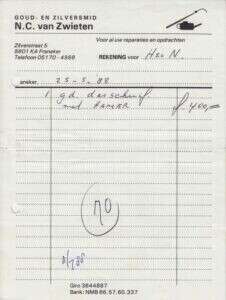 GOUD- EN ZILVERSMID
N.C. van Zwieten
Voor al uw reparaties en opdrachten
Zilverstraat 5
8801 KA Franeker
Telefoon 05170-4988
REKENING voor Hr. N.
aneker 25-5-88
1 gd. dasschuif
met HAMER f 400,-
70
Giro 3644887
Bank: NMB 66.57.60.337